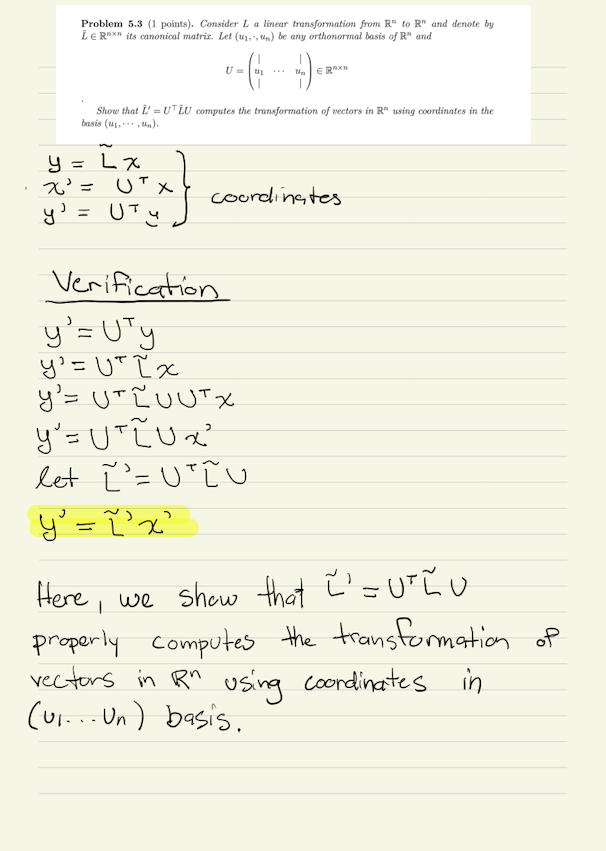 Problem 5.3 (1 points). Consider L a linear transformation from ℝⁿ to ℝⁿ and denote by
L̃ ∈ ℝⁿˣⁿ its canonical matrix. Let (u₁, ·, uₙ) be any orthonormal basis of ℝⁿ and
U = ( | | u₁ ⋯ uₙ | | ) ∈ ℝⁿˣⁿ
.
Show that L̃' = UᵀL̃U computes the transformation of vectors in ℝⁿ using coordinates in the
basis (u₁, ⋯ , uₙ).
y = L̃ x
x' = Uᵀ x } coordinates
y' = Uᵀ y
Verification
y' = Uᵀ y
y' = Uᵀ L̃ x
y' = Uᵀ L̃ U Uᵀ x
y' = Uᵀ L̃ U x'
let L̃' = Uᵀ L̃ U
y' = L̃' x'
Here, we show that L̃' = Uᵀ L̃ U
properly computes the transformation of
vectors in Rⁿ using coordinates in
(u₁... Uₙ) basis.